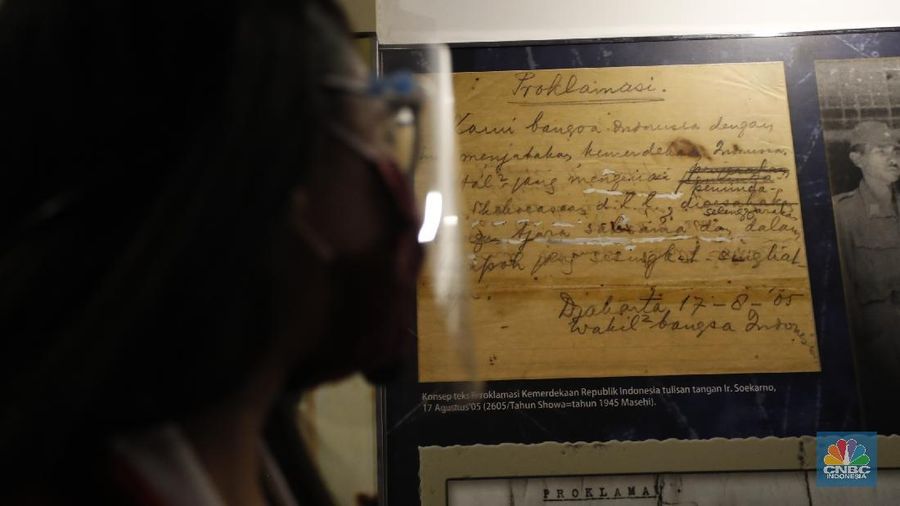 Proklamasi.
Kami bangsa Indonesia dengan
menjatakan kemerdekaan Indonesia.
Hal² jang mengenai pemindahan
peninda-
d.l.l., dioesahakan
selenggarakan
tjara saksama dan dalam
tempoh jang sesingkat-singkat-
Djakarta 17-8-'05
Wakil² bangsa Indonesia
Konsep teks Proklamasi Kemerdekaan Republik Indonesia tulisan tangan Ir. Soekarno,
17 Agustus'05 (2605/Tahun Showa=tahun 1945 Masehi).
PROKLAMA
CNBC
INDONESIA